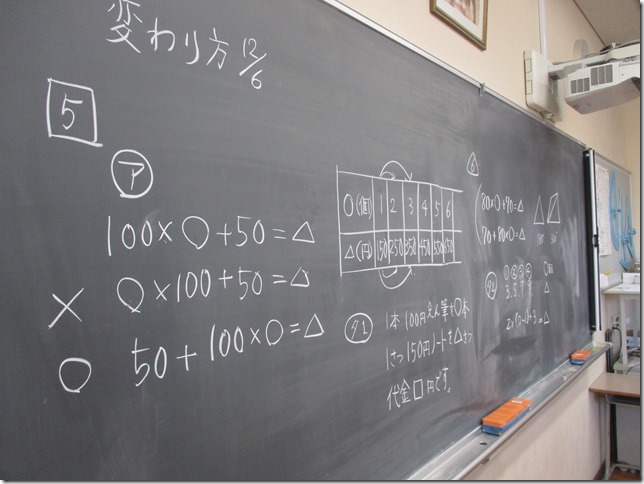 変わり方 12/6
5
ア
100×○+50=△
× ○×100+50=△
○ 50+100×○=△
○(個) 1 2 3 4 5 6
△(円) 150 250 350 450 550 650
1本100円えん筆を○本
1さつ150円ノートを△さつ
代金□円です。
6
80×○+70=△
70+80×○=△
① ② ③ ④
3 5 7 9 △